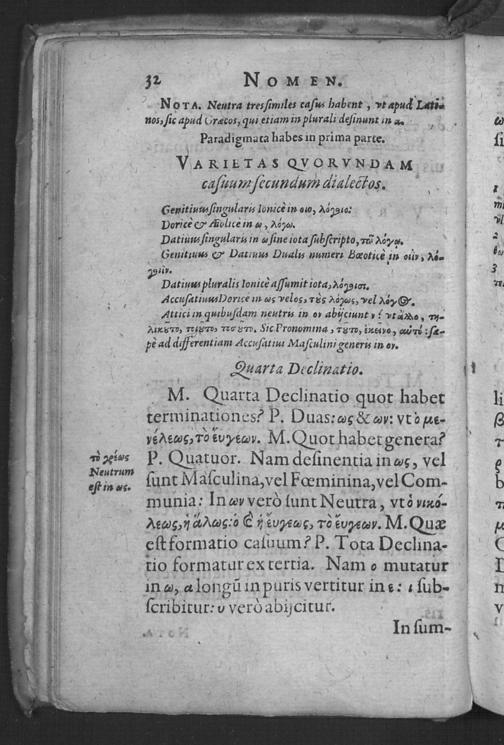 32 NOMEN.
NOTA. Neutra tres similes casus habent, vt apud Lati-
nos, sic apud Græcos, qui etiam in plurali desinunt in α.
Paradigmata habes in prima parte.
VARIETAS QVORVNDAM
casuum secundum dialectos.
Genitiuus singularis Ionicè in οιο, λόγοιο:
Doricè & Æolicè in ω, λόγω.
Datiuus singularis in ω sine iota subscripto, τῶ λόγω.
Genitiuus & Datiuus Dualis numeri Bœoticè in οιϊν, λό-
γοιϊν.
Datiuus pluralis Ionicè assumit iota, λόγοισι.
Accusatiuus Doricè in ως velος, τὼς λόγως, vel λόγος.
Attici in quibusdam neutris in ον abijciunt ν: vt ἄλλο, τη-
λικοῦτο, τοιοῦτο, τοσοῦτο, Sic Pronomina, τοῦτο, ἐκεῖνο, αὐτό: sæ-
pè ad differentiam Accusatiui Masculini generis in ον.
Quarta Declinatio.
M. Quarta Declinatio quot habet
terminationes? P. Duas: ως & ων: vt ὁ με-
νέλεως, τὸ εὔγεων. M. Quot habet genera?
P. Quatuor. Nam desinentia in ως, vel
τὸ χρέως
Neutrum
est in ως.
sunt Masculina, vel Fœminina, vel Com-
munia: In ων verò sunt Neutra, vt ὁ νικό-
λεως, ἡ ἅλως: ὁ & ἡ εὔγεως, τὸ εὔγεων. M. Quæ
est formatio casuum? P. Tota Declina-
tio formatur ex tertia. Nam ο mutatur
in ω, α longũ in puris vertitur in ε: ι sub-
scribitur: υ verò abijcitur.
In sum-